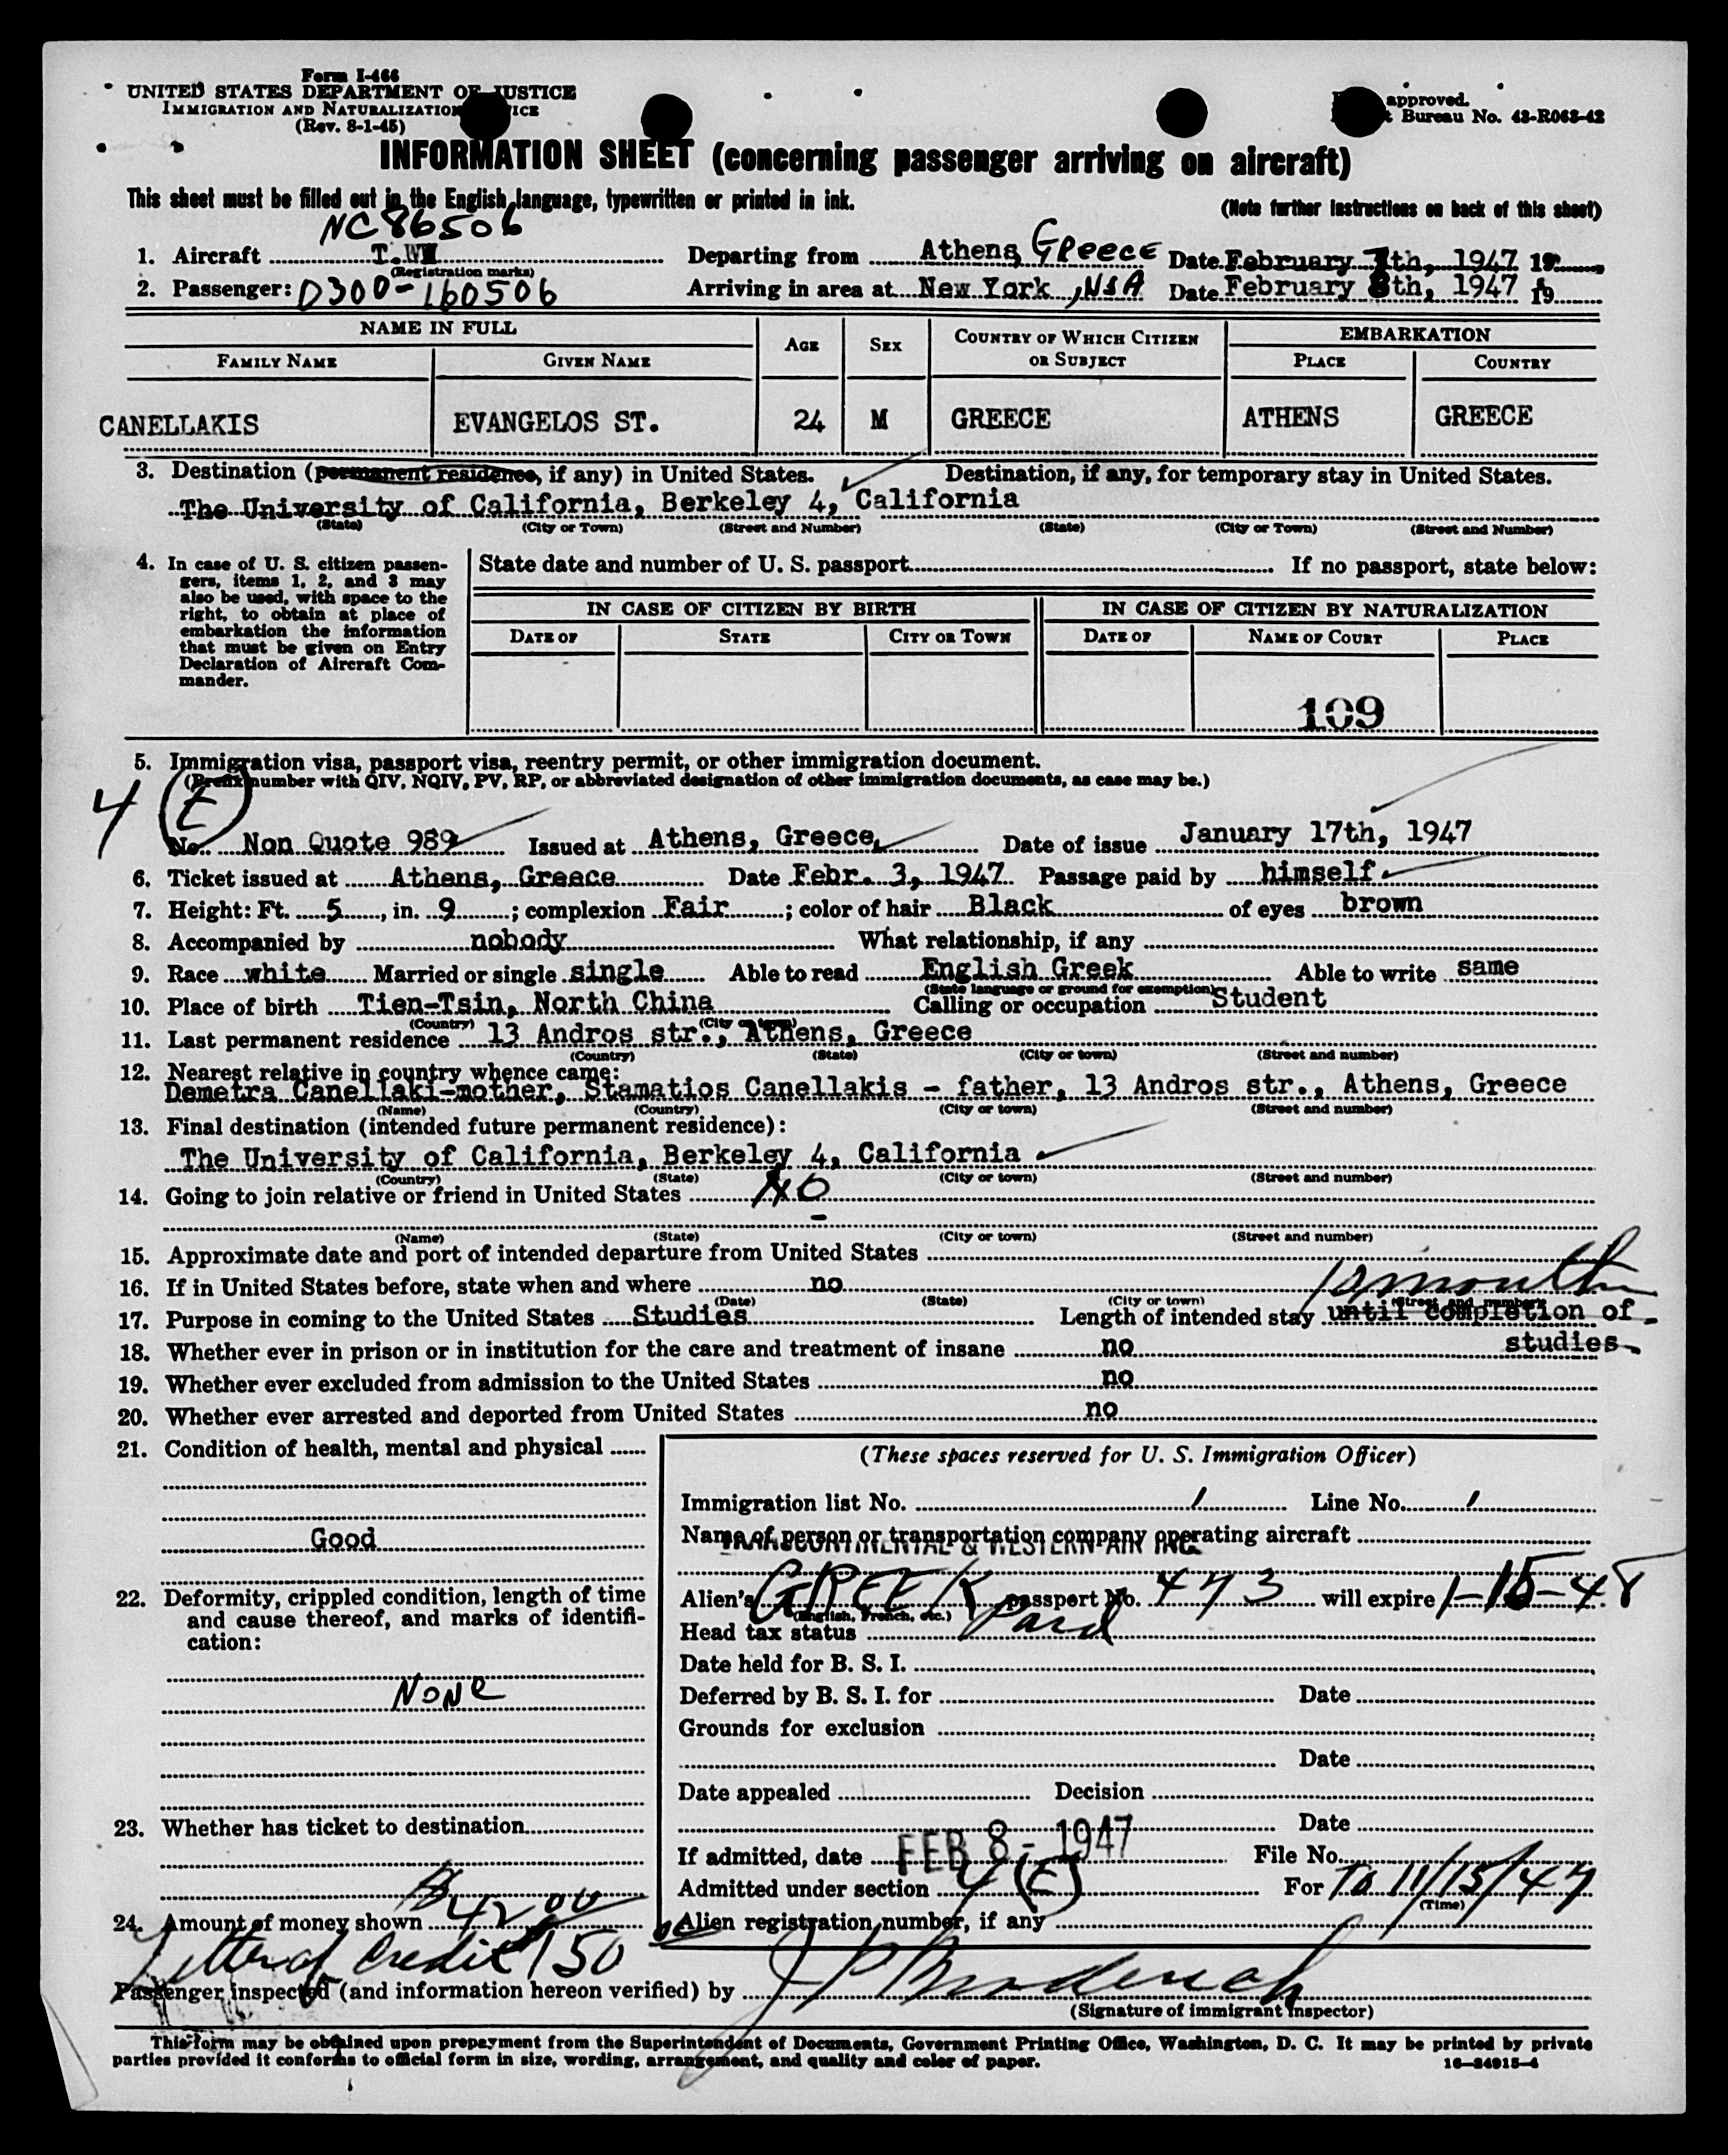 Form I-466
UNITED STATES DEPARTMENT OF JUSTICE
IMMIGRATION AND NATURALIZATION
(Rev. 8-1-45)
approved.
Bureau No. 43-R063-42
INFORMATION SHEET (concerning passenger arriving on aircraft)
This sheet must be filled out in the English language, typewritten or printed in ink.
(Note further instructions on back of this sheet)
NC86506
1. Aircraft T.W Departing from Athens Greece Date February 7th, 1947 19
(Registration marks)
2. Passenger: D300-160506 Arriving in area at New York, USA Date February 8th, 1947 19
NAME IN FULL AGE SEX COUNTRY OF WHICH CITIZEN OR SUBJECT EMBARKATION
FAMILY NAME GIVEN NAME PLACE COUNTRY
CANELLAKIS EVANGELOS ST. 24 M GREECE ATHENS GREECE
3. Destination (permanent residence, if any) in United States. Destination, if any, for temporary stay in United States.
The University of California, Berkeley 4, California
(State) (City or Town) (Street and Number) (State) (City or Town) (Street and Number)
4. In case of U. S. citizen passen-
gers, items 1, 2, and 3 may
also be used, with space to the
right, to obtain at place of
embarkation the information
that must be given on Entry
Declaration of Aircraft Com-
mander.
State date and number of U. S. passport If no passport, state below:
IN CASE OF CITIZEN BY BIRTH IN CASE OF CITIZEN BY NATURALIZATION
DATE OF STATE CITY OR TOWN DATE OF NAME OF COURT PLACE
109
5. Immigration visa, passport visa, reentry permit, or other immigration document.
(Prefix number with QIV, NQIV, PV, RP, or abbreviated designation of other immigration documents, as case may be.)
4 (E)
No. Non Quote 989 Issued at Athens, Greece, Date of issue January 17th, 1947
6. Ticket issued at Athens, Greece Date Febr. 3, 1947 Passage paid by himself
7. Height: Ft. 5, in. 9; complexion Fair; color of hair Black of eyes brown
8. Accompanied by nobody What relationship, if any
9. Race white Married or single single Able to read English Greek Able to write same
(State language or ground for exemption)
10. Place of birth Tien-Tsin, North China Calling or occupation Student
(Country) (City or town)
11. Last permanent residence 13 Andros str., Athens, Greece
(Country) (State) (City or town) (Street and number)
12. Nearest relative in country whence came:
Demetra Canellaki-mother, Stamatios Canellakis - father, 13 Andros str., Athens, Greece
(Name) (Country) (City or town) (Street and number)
13. Final destination (intended future permanent residence):
The University of California, Berkeley 4, California
(Country) (State) (City or town) (Street and number)
14. Going to join relative or friend in United States NO
(Name) (State) (City or town) (Street and number)
15. Approximate date and port of intended departure from United States
16. If in United States before, state when and where no
(Date) (State) (City or town) (Street and number)
17. Purpose in coming to the United States Studies Length of intended stay until completion of
studies
18. Whether ever in prison or in institution for the care and treatment of insane no
19. Whether ever excluded from admission to the United States no
20. Whether ever arrested and deported from United States no
21. Condition of health, mental and physical
Good
22. Deformity, crippled condition, length of time
and cause thereof, and marks of identifi-
cation:
NONE
23. Whether has ticket to destination
24. Amount of money shown 42 00
Letter of credit 150
(These spaces reserved for U. S. Immigration Officer)
Immigration list No. 1 Line No. 1
Name of person or transportation company operating aircraft
TRANSCONTINENTAL & WESTERN AIR INC.
Alien's GREEK passport No. 473 will expire 1-15-48
(English, French, etc.)
Head tax status Paid
Date held for B. S. I.
Deferred by B. S. I. for Date
Grounds for exclusion
Date
Date appealed Decision
Date
If admitted, date FEB 8 - 1947 File No.
Admitted under section 4 (E) For To 11/15/47
(Time)
Alien registration number, if any
Passenger inspected (and information hereon verified) by
(Signature of immigrant inspector)
This form may be obtained upon prepayment from the Superintendent of Documents, Government Printing Office, Washington, D. C. It may be printed by private
parties provided it conforms to official form in size, wording, arrangement, and quality and color of paper.
16-34915-4